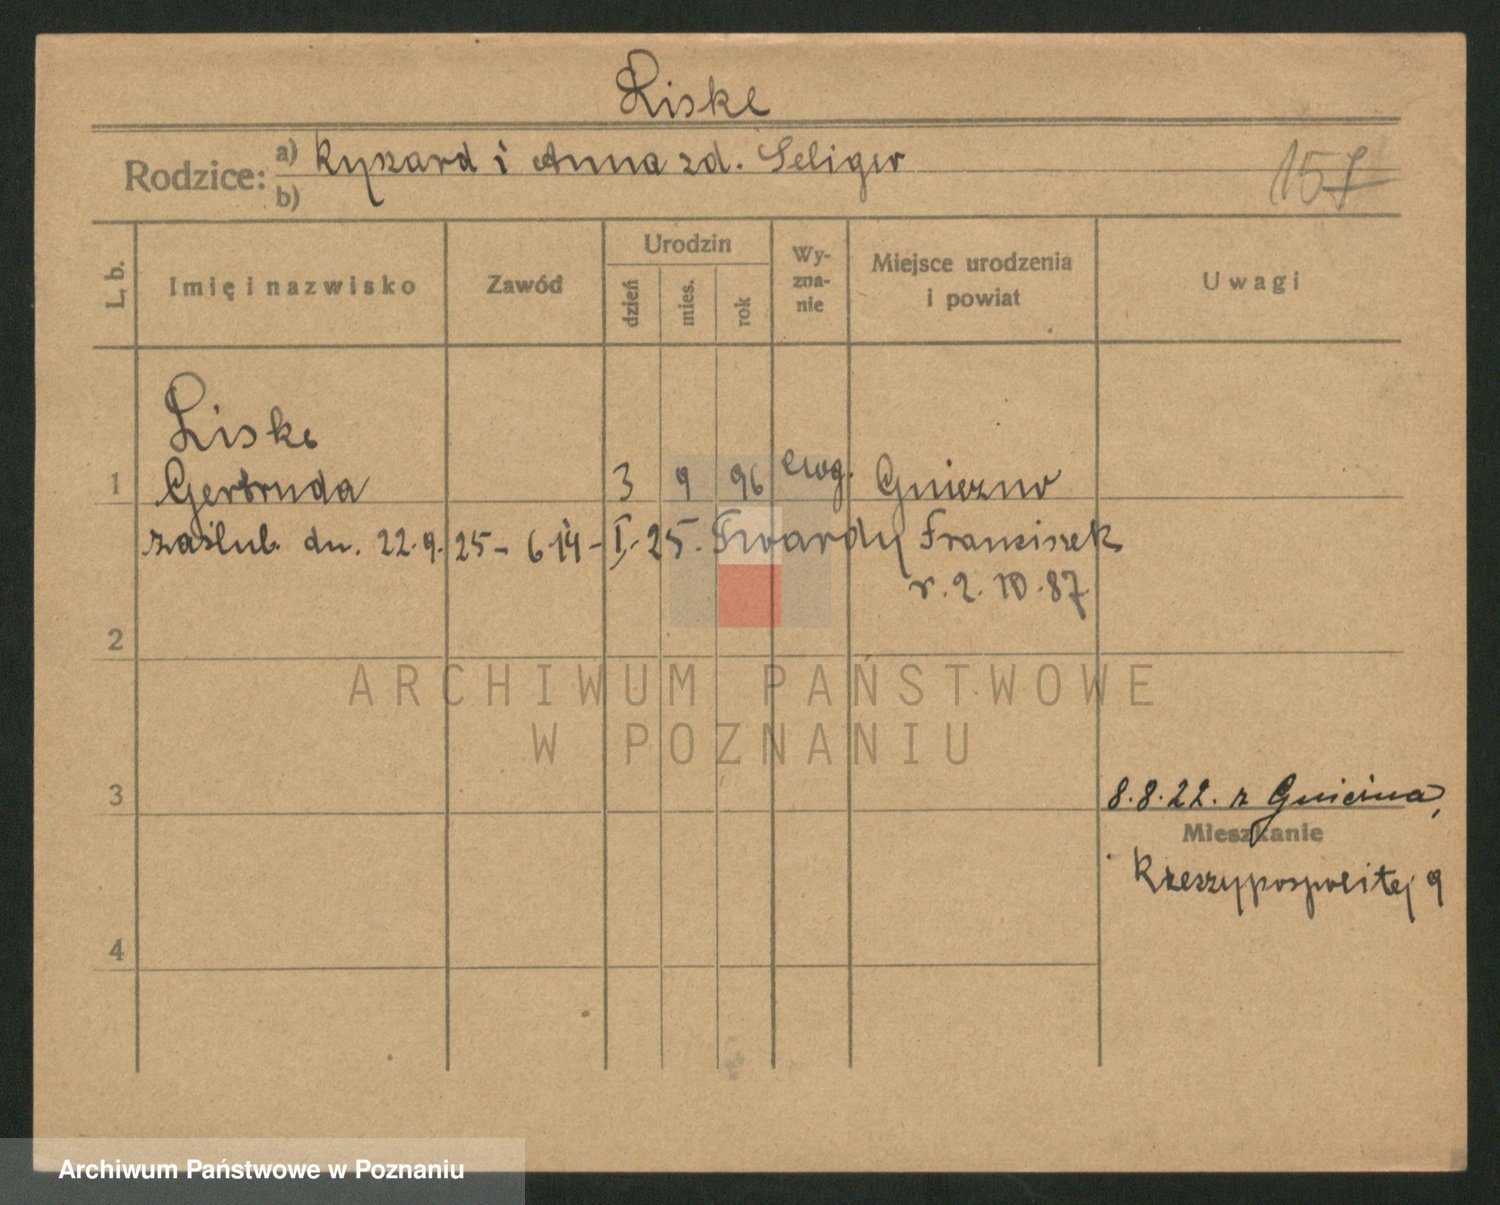 Liske
Rodzice: a) Ryszard i Anna zd. Seliger
b)
157
L. b. Imię i nazwisko Zawód Urodzin dzień mies. rok Wyznanie Miejsce urodzenia i powiat Uwagi
Liske
1 Gertruda 3 9 96 ewg. Gniezno
zaślub. dn. 22.9.25 - 6.14 - I, 25. Twardy Franciszek
r. 2. 10.87
2
ARCHIWUM PAŃSTWOWE
W POZNANIU
3
8.8.22. z Gniezna,
Mieszkanie
Rzeszypospolitej 9
4
Archiwum Państwowe w Poznaniu